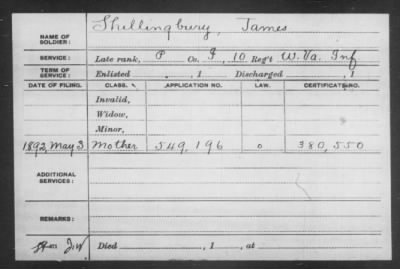 NAME OF SOLDIER: Shellingbury, James
SERVICE: Late rank, P Co. I, 10 Reg't W. Va. Inf
TERM OF SERVICE: Enlisted , 1 Discharged , 1
DATE OF FILING. CLASS. APPLICATION NO. LAW. CERTIFICATE NO.
Invalid,
Widow,
Minor,
1892, May 3 Mother 549,196 o 380,550
ADDITIONAL SERVICES:
REMARKS:
Died , 1 , at